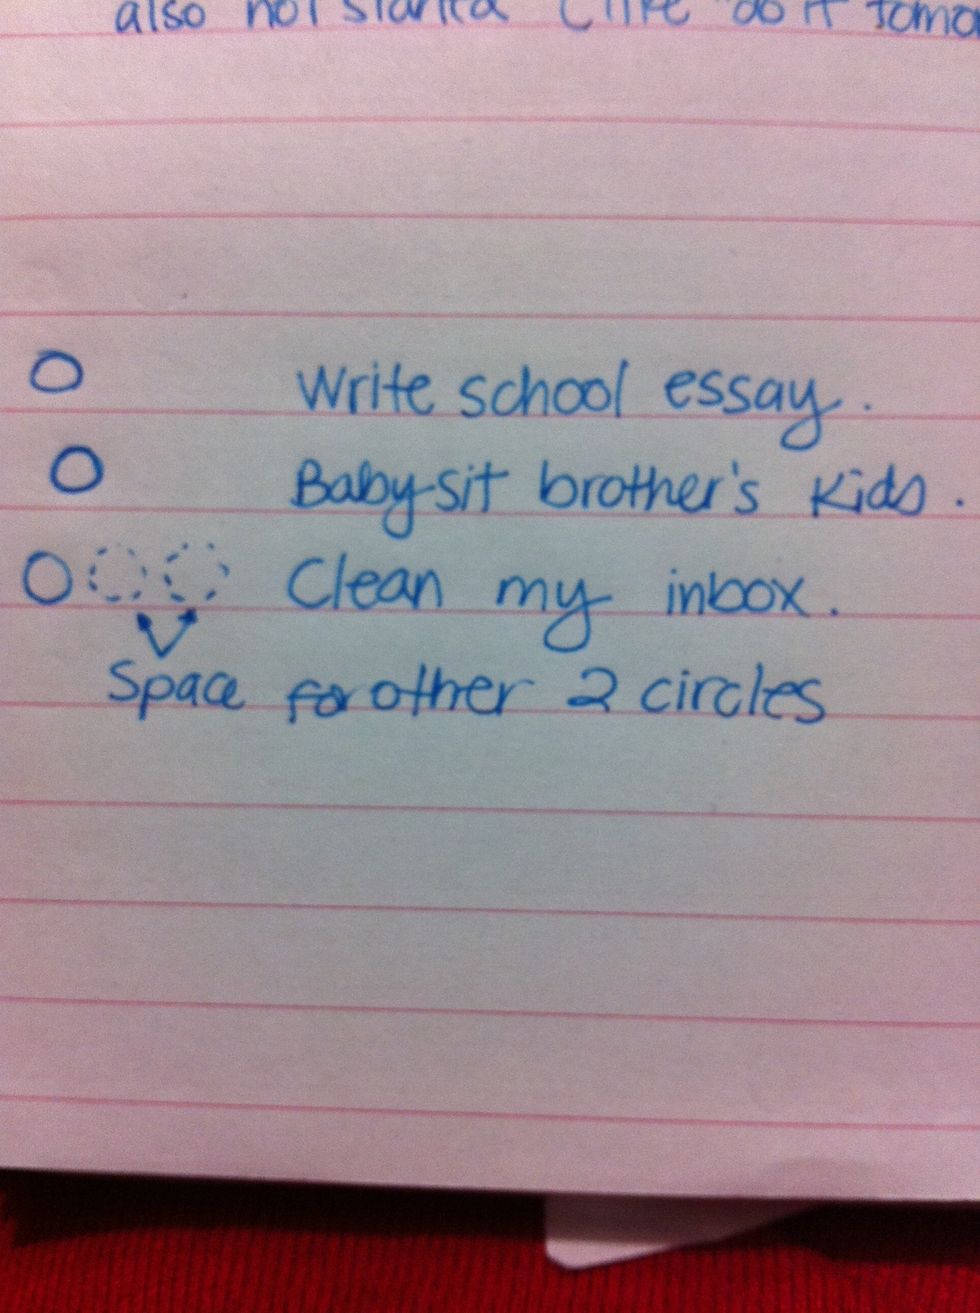 also not started (like "do it
Write school essay.
Babysit brother's kids.
Clean my inbox.
Space for other 2 circles